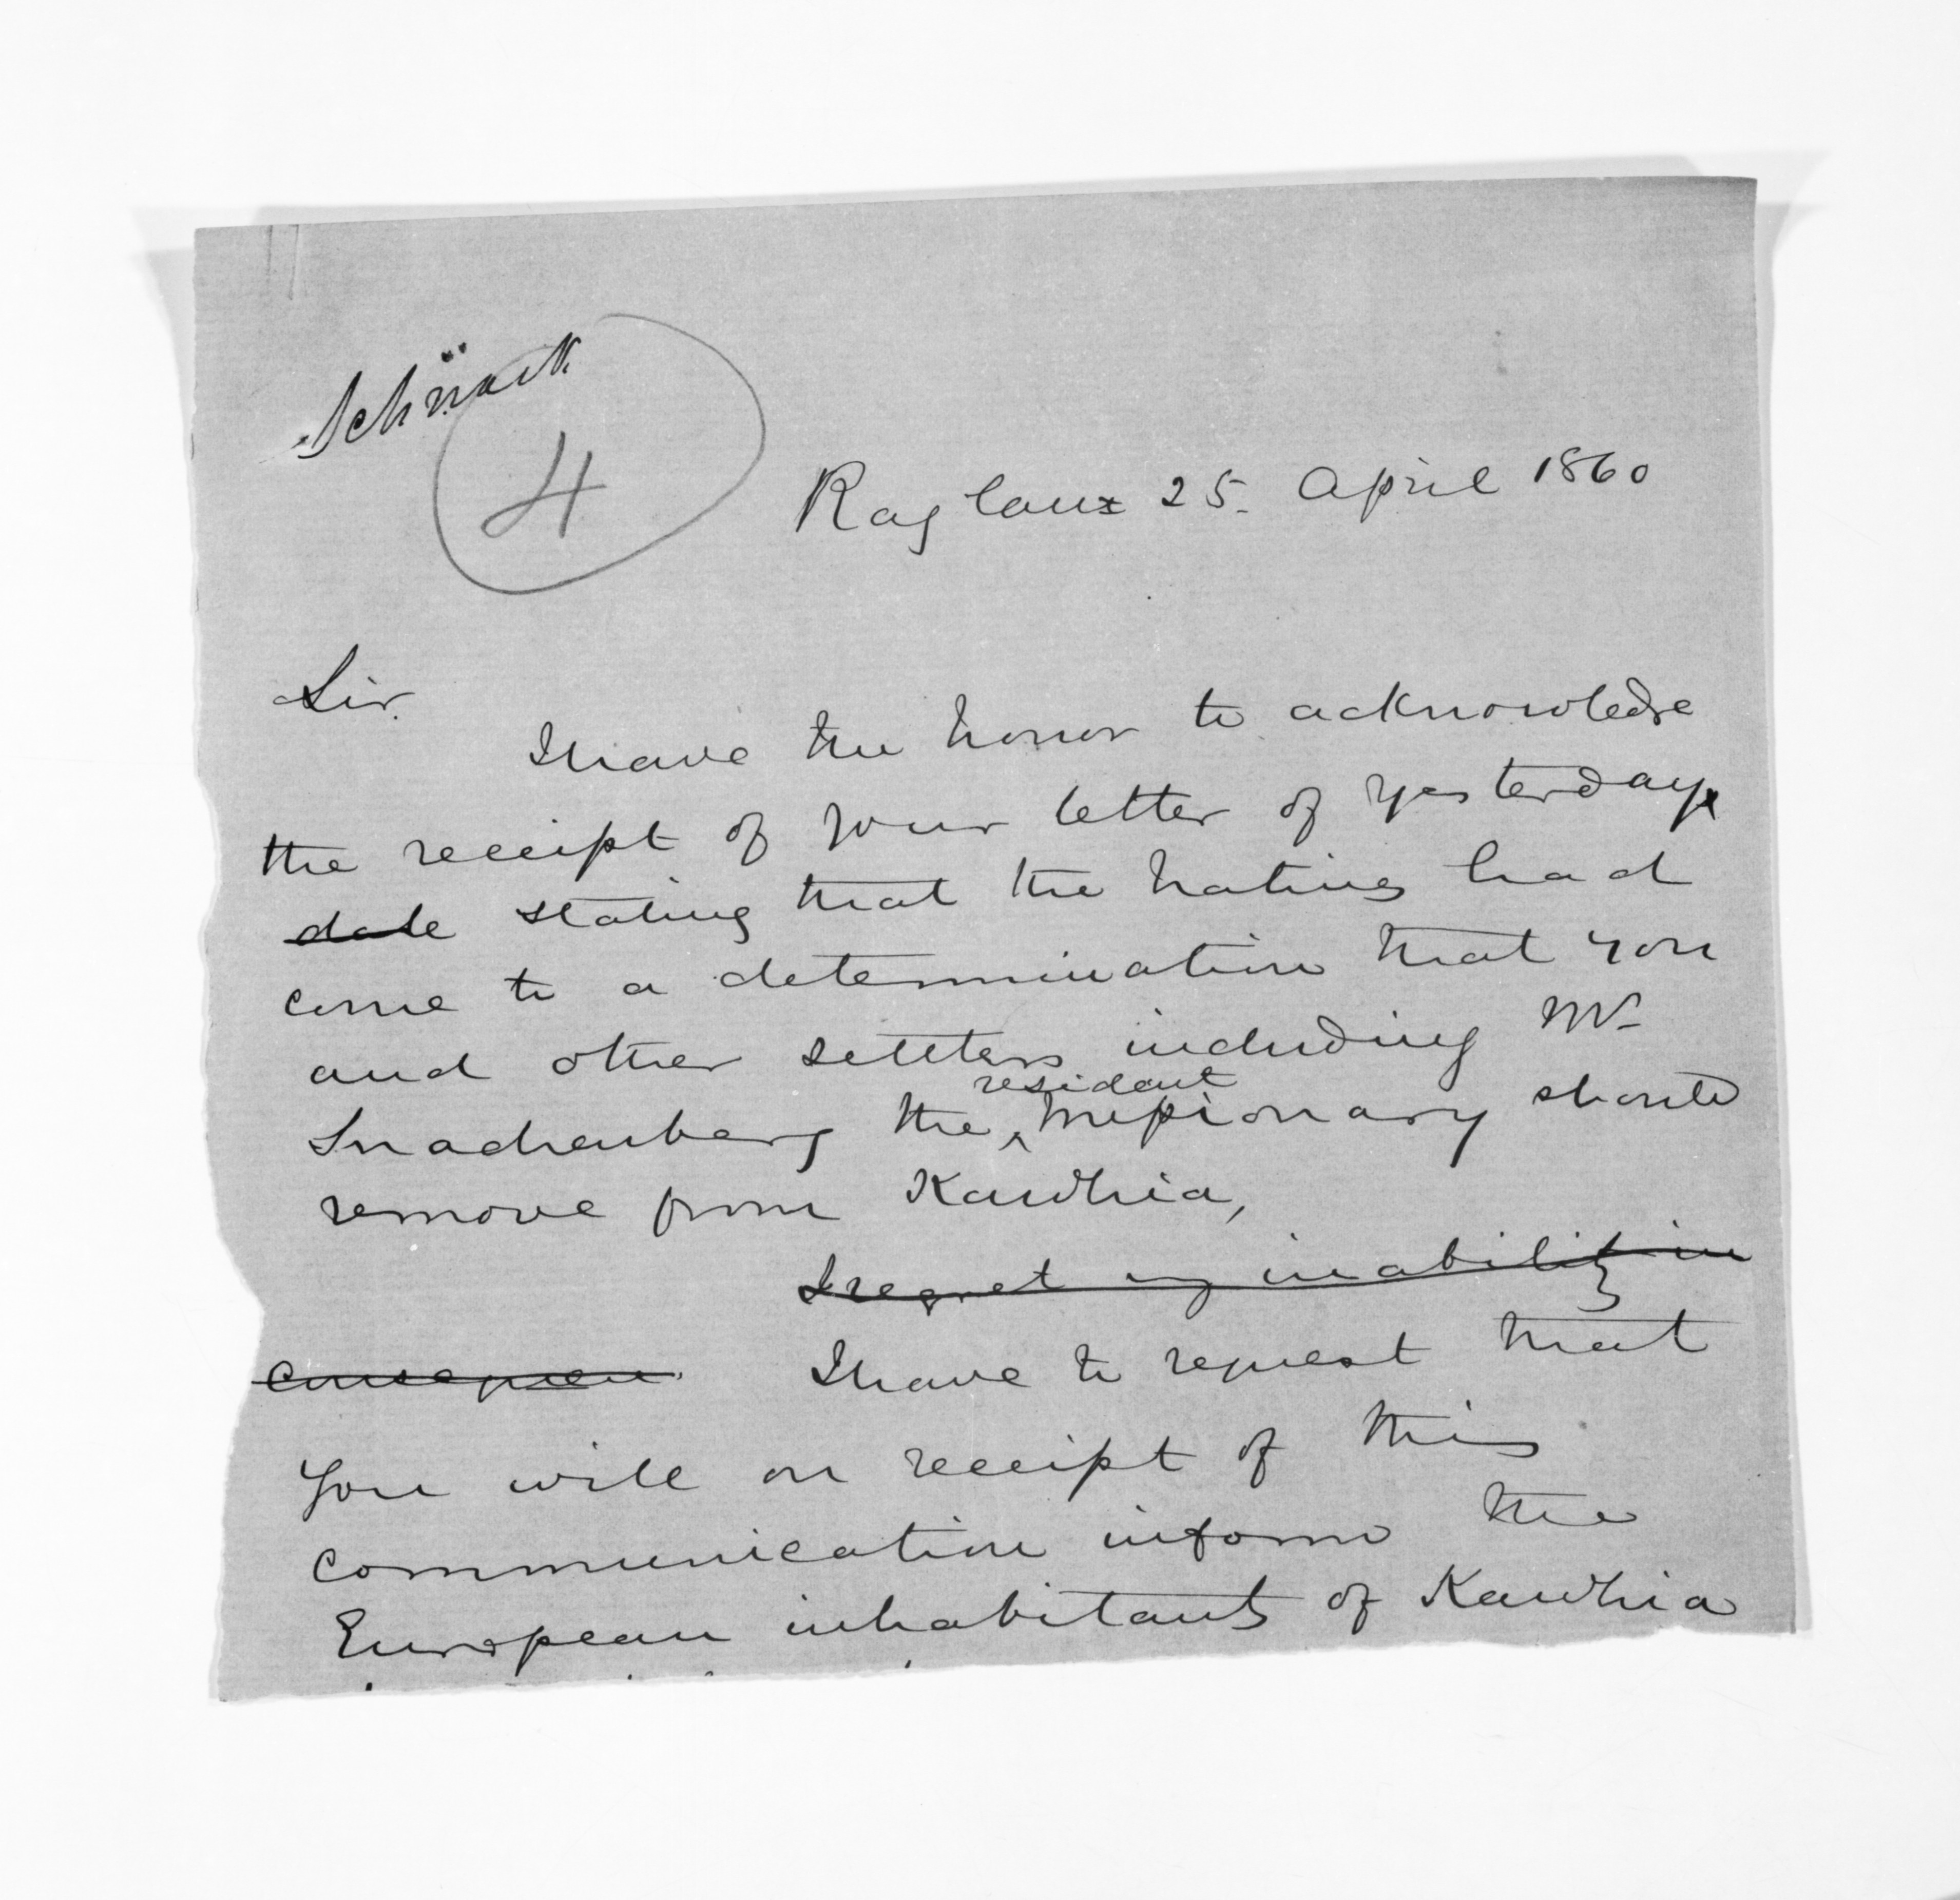 Schnack
4
Raglan 25. April 1860
Sir.
I have the honor to acknowledge
the receipt of your letter of yesterday
date stating that the natives had
come to a determination that you
and other settlers including Mr
Snachenberg the resident Missionary should
remove from Kawhia,
I regret my inability in
consequen I have to request that
You will on receipt of this
communication inform the
European inhabitants of Kawhia